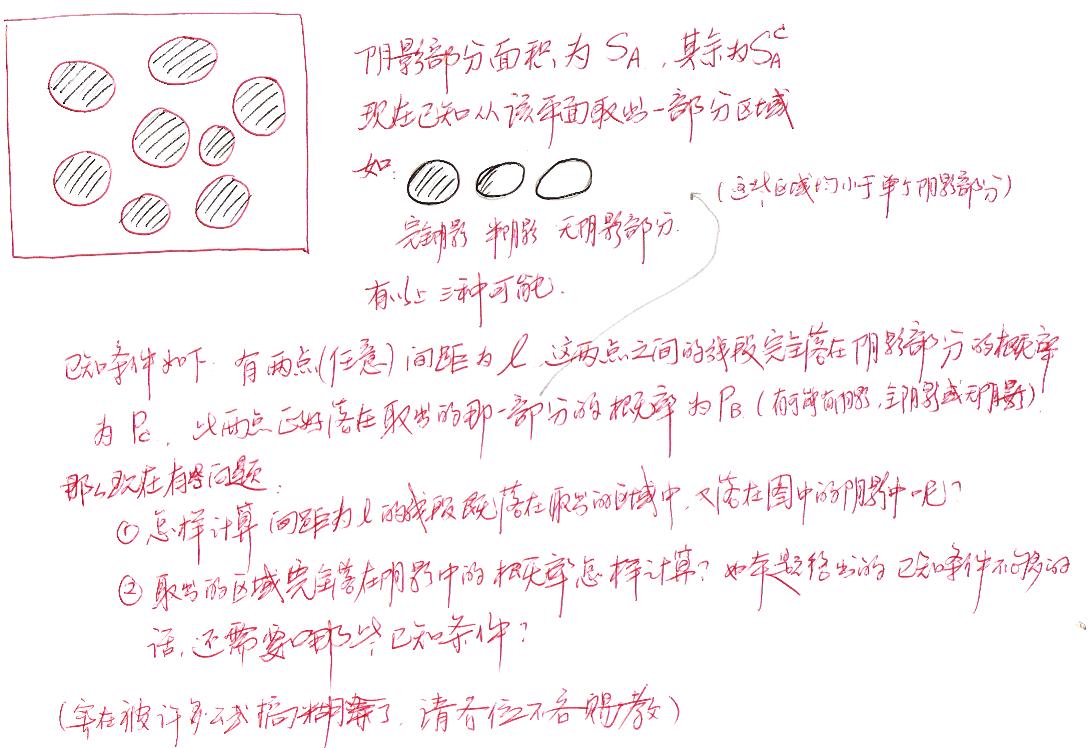 阴影部分面积为 SA，其余为SA^c
现在已知从该平面取出一部分区域
如：
（这些区域均小于单个阴影部分）
完全阴影 半阴影 无阴影部分.
有以上三种可能.
已知条件如下. 有两点(任意)间距为 l 这两点之间的线段完全落在阴影部分的概率
为 Pc，此两点正好落在取出的那一部分的概率为 PB（有可能有阴影,全阴影或无阴影）.
那么现在有些问题：
① 怎样计算 间距为 l 的线段既落在取出的区域中，又落在图中的阴影中呢？
② 取出的区域完全落在阴影中的概率怎样计算？如本题给出的已知条件不够的
话，还需要哪些已知条件？
（实在被许多公式搞糊涂了，请各位不吝赐教）